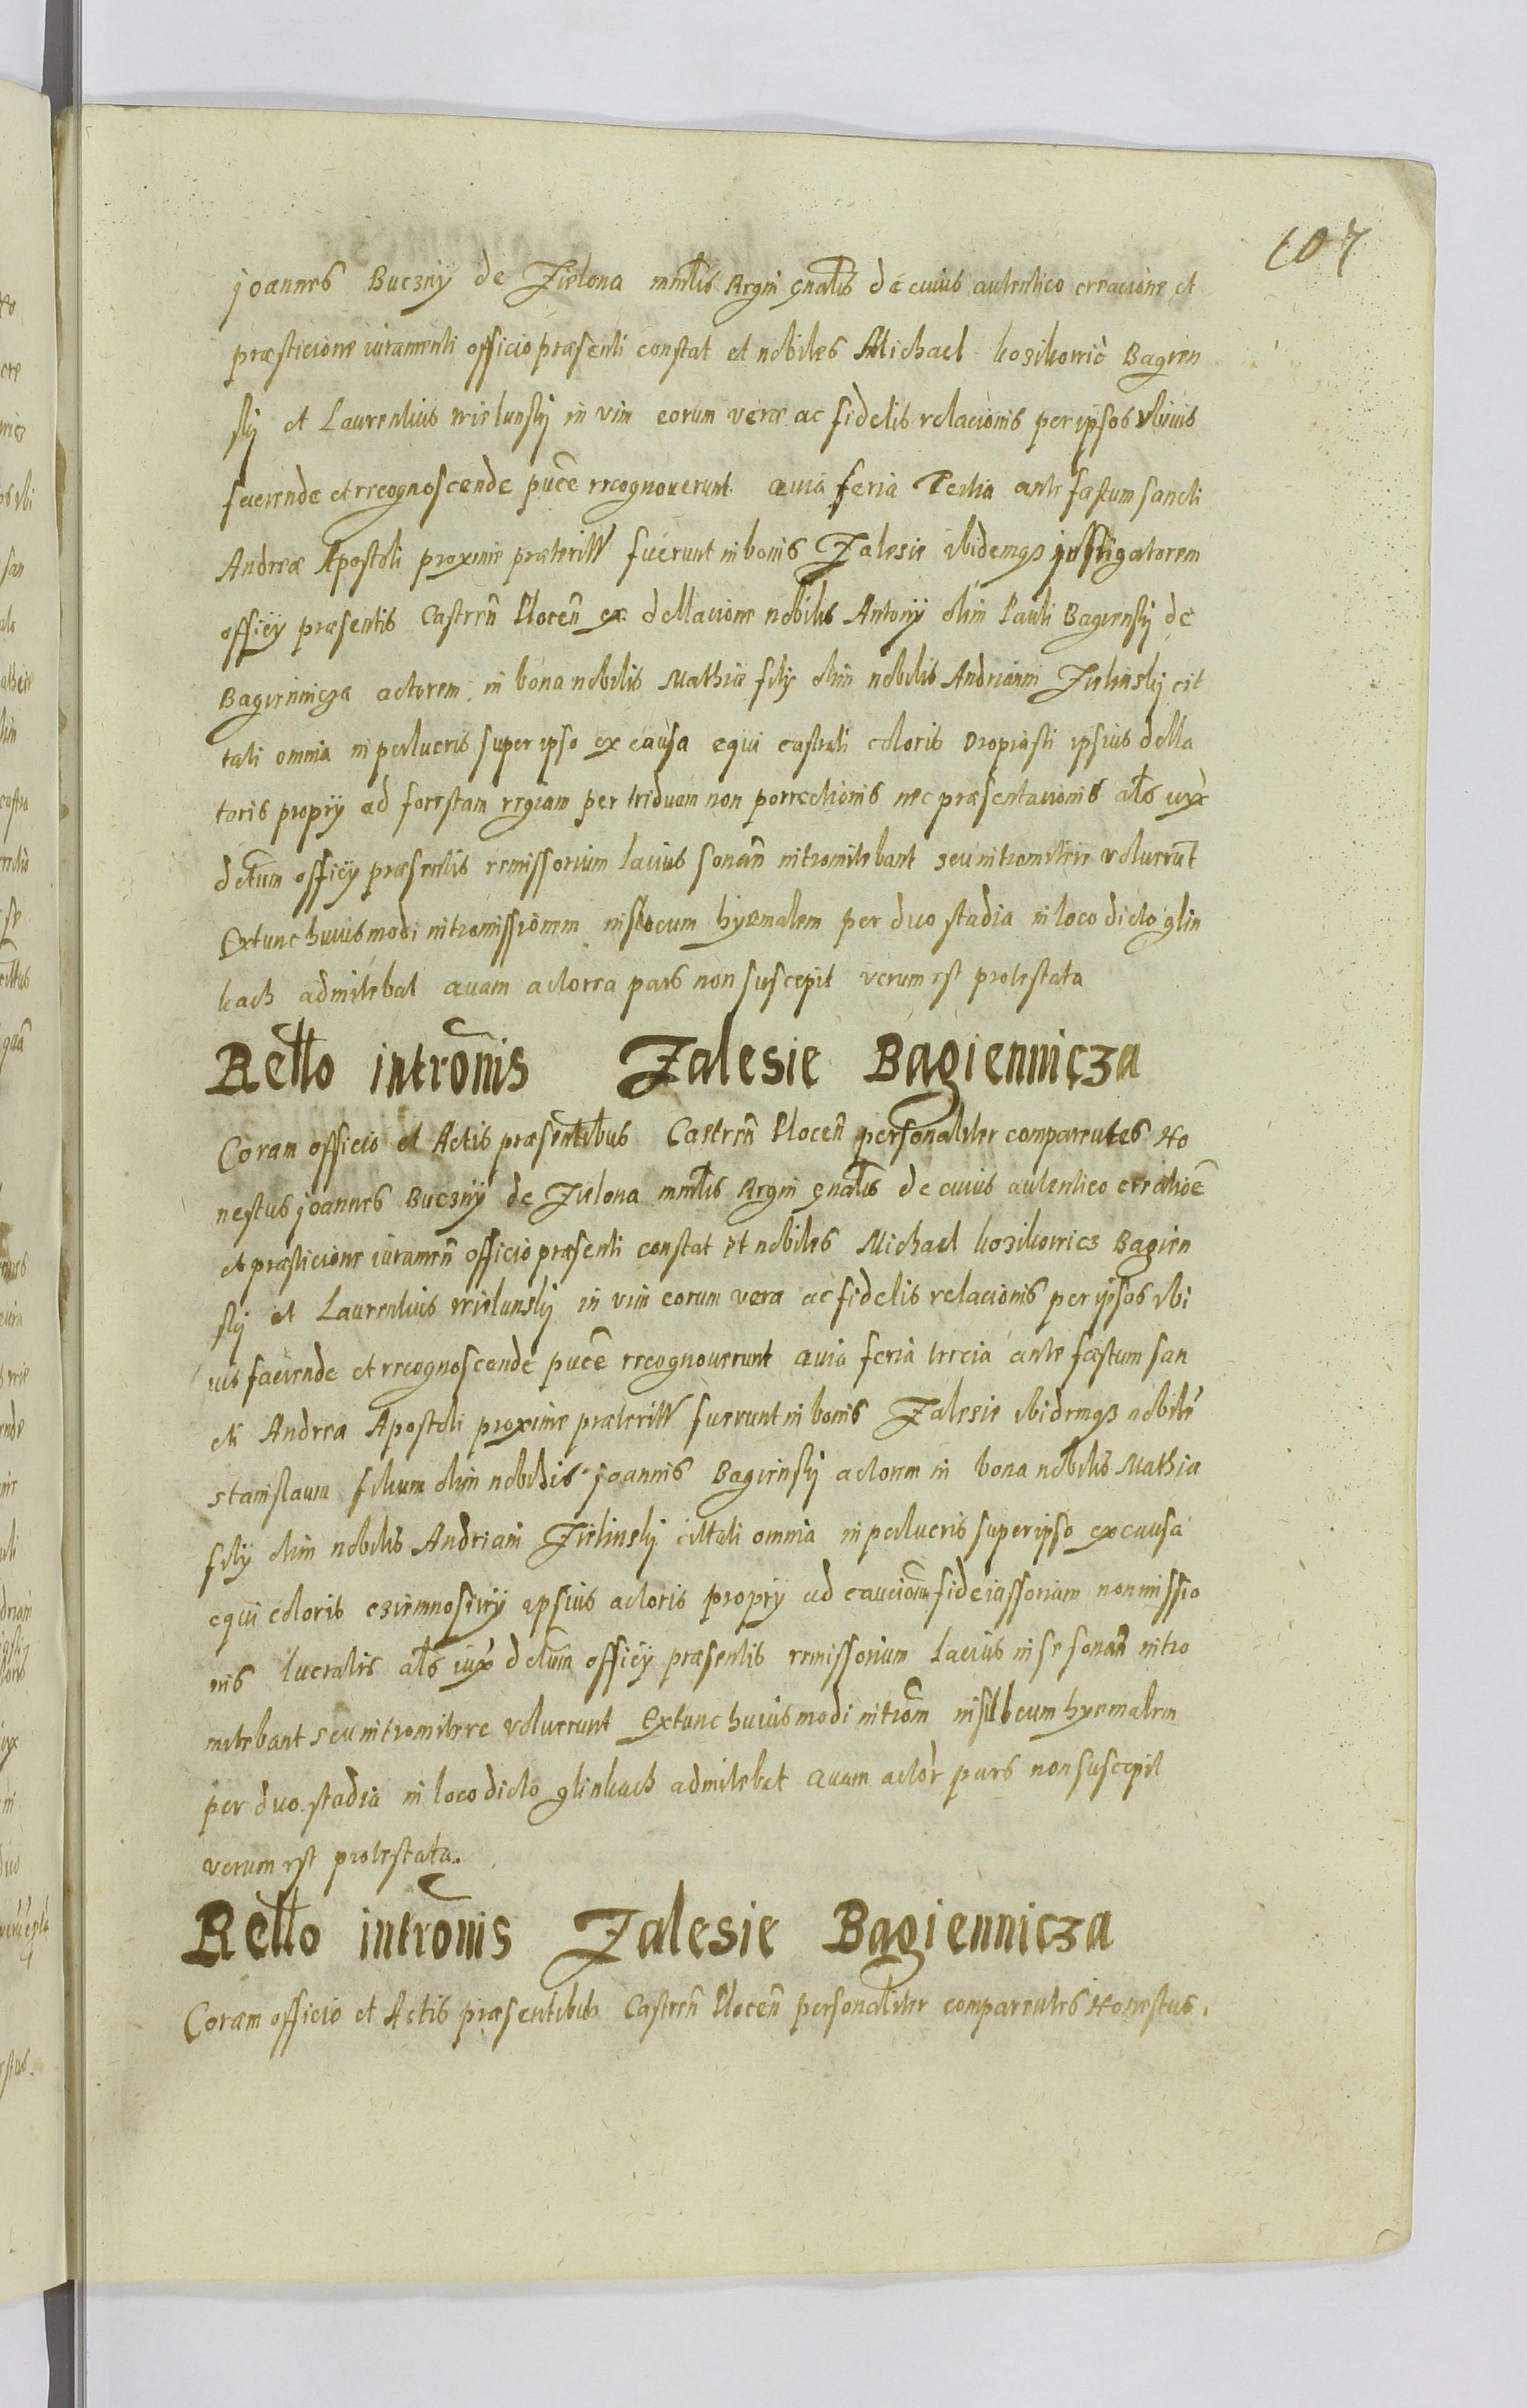 107
joannes Buczny de Zielona mnrlis Regni gnalis de cuius autentico creacione et
præsticione iuramenti officio præsenti constat et nobiles Michael kozikowic Bagien
sky et Laurentius wielunsky in vim eorum veræ ac fidelis relacionis per ipsos
faciende et recognoscende pnce recognoverunt quia feria Tertia ante fæstum sancti
Andreæ Apostoli proxime præterito fuerunt in bonis Zalesie ibidemqz instigatorem
officy præsentis Castren Plocen ex dellacione nobilis Antony olim Pauli Bagiensky de
Bagiennicza actorem in bona nobilis Mathiæ fily olim nobilis Andrianni Zielinsky cit
tati omnia in perlucris super ipso ex causa equi castrati coloris ipsius della
toris propry ad forestam regiam per triduam non porrectionis nec præsentacionis als iux
dctum officy præsentis remissorium lacius sonan intromitebant seu intromitere voluerunt
Extunc huiusmodi intromissionem hyemalem per duo stadia in loco dicto glin
kach admitebat quam actorea pars non suscepit verum est protestata
Rello intronis Zalesie Bagiennicza
Coram officio et Actis præsentibus Castren Plocen personaliter comparentes Ho
nestus joannes Buczny de Zielona mnrlis Regni gnalis de cuius autentico creatioe
et præsticione iuramen officio præsenti constat et nobiles Michael kozikowicz Bagien
sky et Laurentius wielunsky in vim eorum vera ac fidelis relacionis per ipsos ibi
us faciende et recognoscende pnce recognoverunt quia feria tercia ante fæstum san
cti Andrea Apostoli proxime præterito fuerunt in bonis Zalesie ibidemqz nobile
stanislaum filium olim nobilis joannis Bagiensky actorem in bona nobilis Mathia
fily olim nobilis Andriani Zielinsky cittati omnia in perlucris super ipso ex causa
equi coloris cziemnosiwy ipsius actoris propry ad cauciom fideiussoriam non missio
nis lucralis als iux dctum officy præsentis remissorium lacius in se sonan intro
mitebant seu intromitere voluerunt Extunc huiusmodi introm hyemalem
per duo stadia in loco dicto glinkach admitebat quam actor pars non suscepit
verum est protestata.
Rello intronis Zalesie Bagiennicza
Coram officio et Actis præsentibus Castren Plocen personaliter comparentes Honestus.